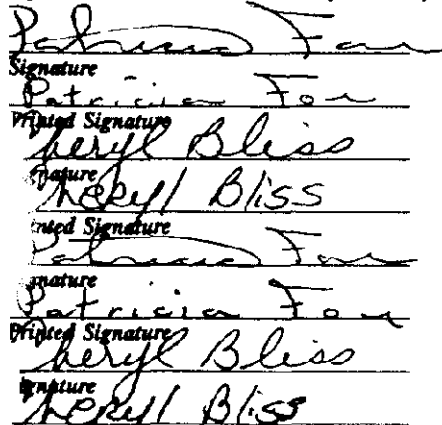 Patricia Fou
Signature
Patricia Fou
Printed Signature
Cheryl Bliss
gnature
Cheryl Bliss
nted Signature
Patricia Fou
gnature
Patricia Fou
Printed Signature
Cheryl Bliss
ignature
Cheryl Bliss